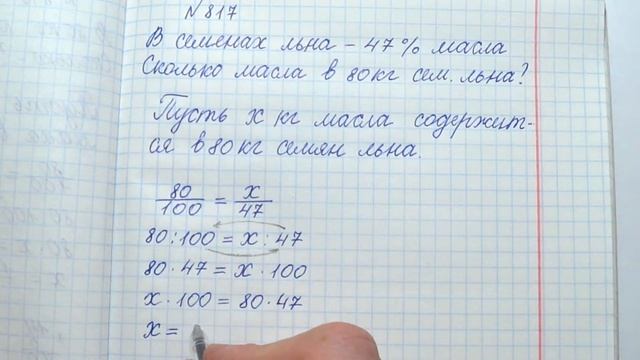 № 817
В семенах льна – 47% масла
Сколько масла в 80кг сем. льна?
Пусть x кг масла содержит-
ся в 80 кг семян льна.
80/100 = x/47
80:100 = x:47
80·47 = x·100
x·100 = 80·47
x =